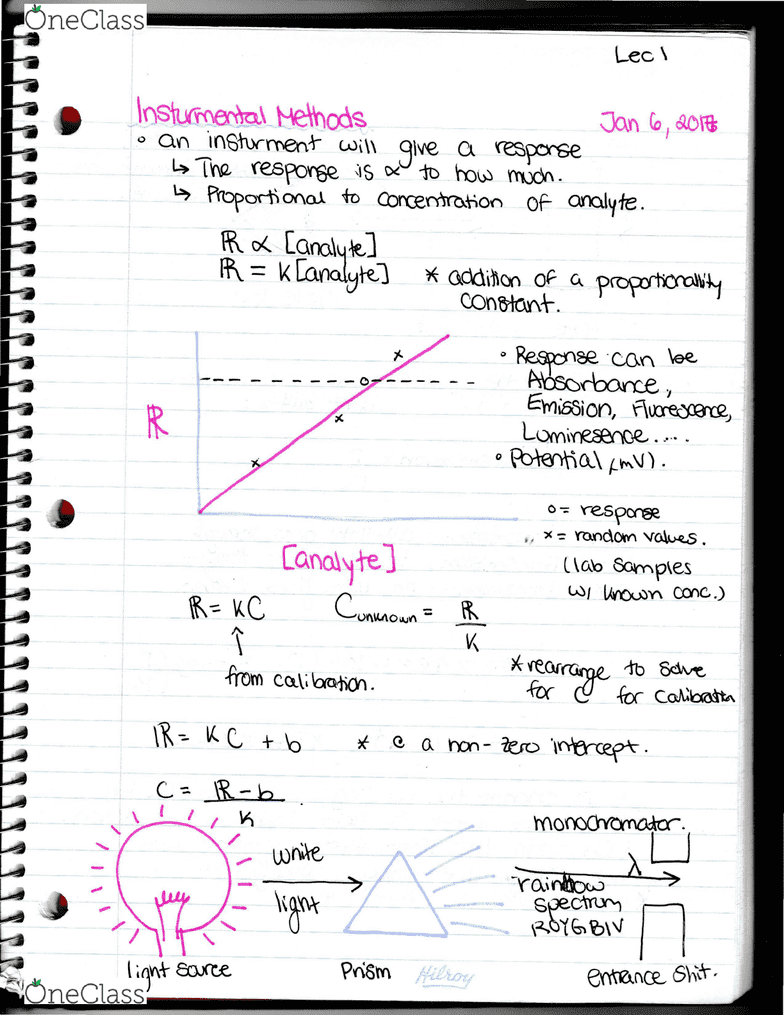 OneClass
Lec 1
Insturmental Methods
Jan 6, 2017
• an insturment will give a response
↳ The response is ∝ to how much.
↳ Proportional to concentration of analyte.
R ∝ [analyte]
R = K[analyte] * addition of a proportionallity
constant.
• Response can be
Absorbance,
Emission, Fluorescence,
Luminesence....
• Potential (mV).
R
o = response
x = random values.
(lab samples
w/ known conc.)
[analyte]
R = KC
Cunknown = R
K
↑
from calibration.
* rearrange to solve
for C for calibration
R = KC + b * @ a non-zero intercept.
C = R - b
K
monochromator.
white
light
λ
rainbow
spectrum
ROYGBIV
light source
Prism
Hilroy
entrance Slit.
OneClass